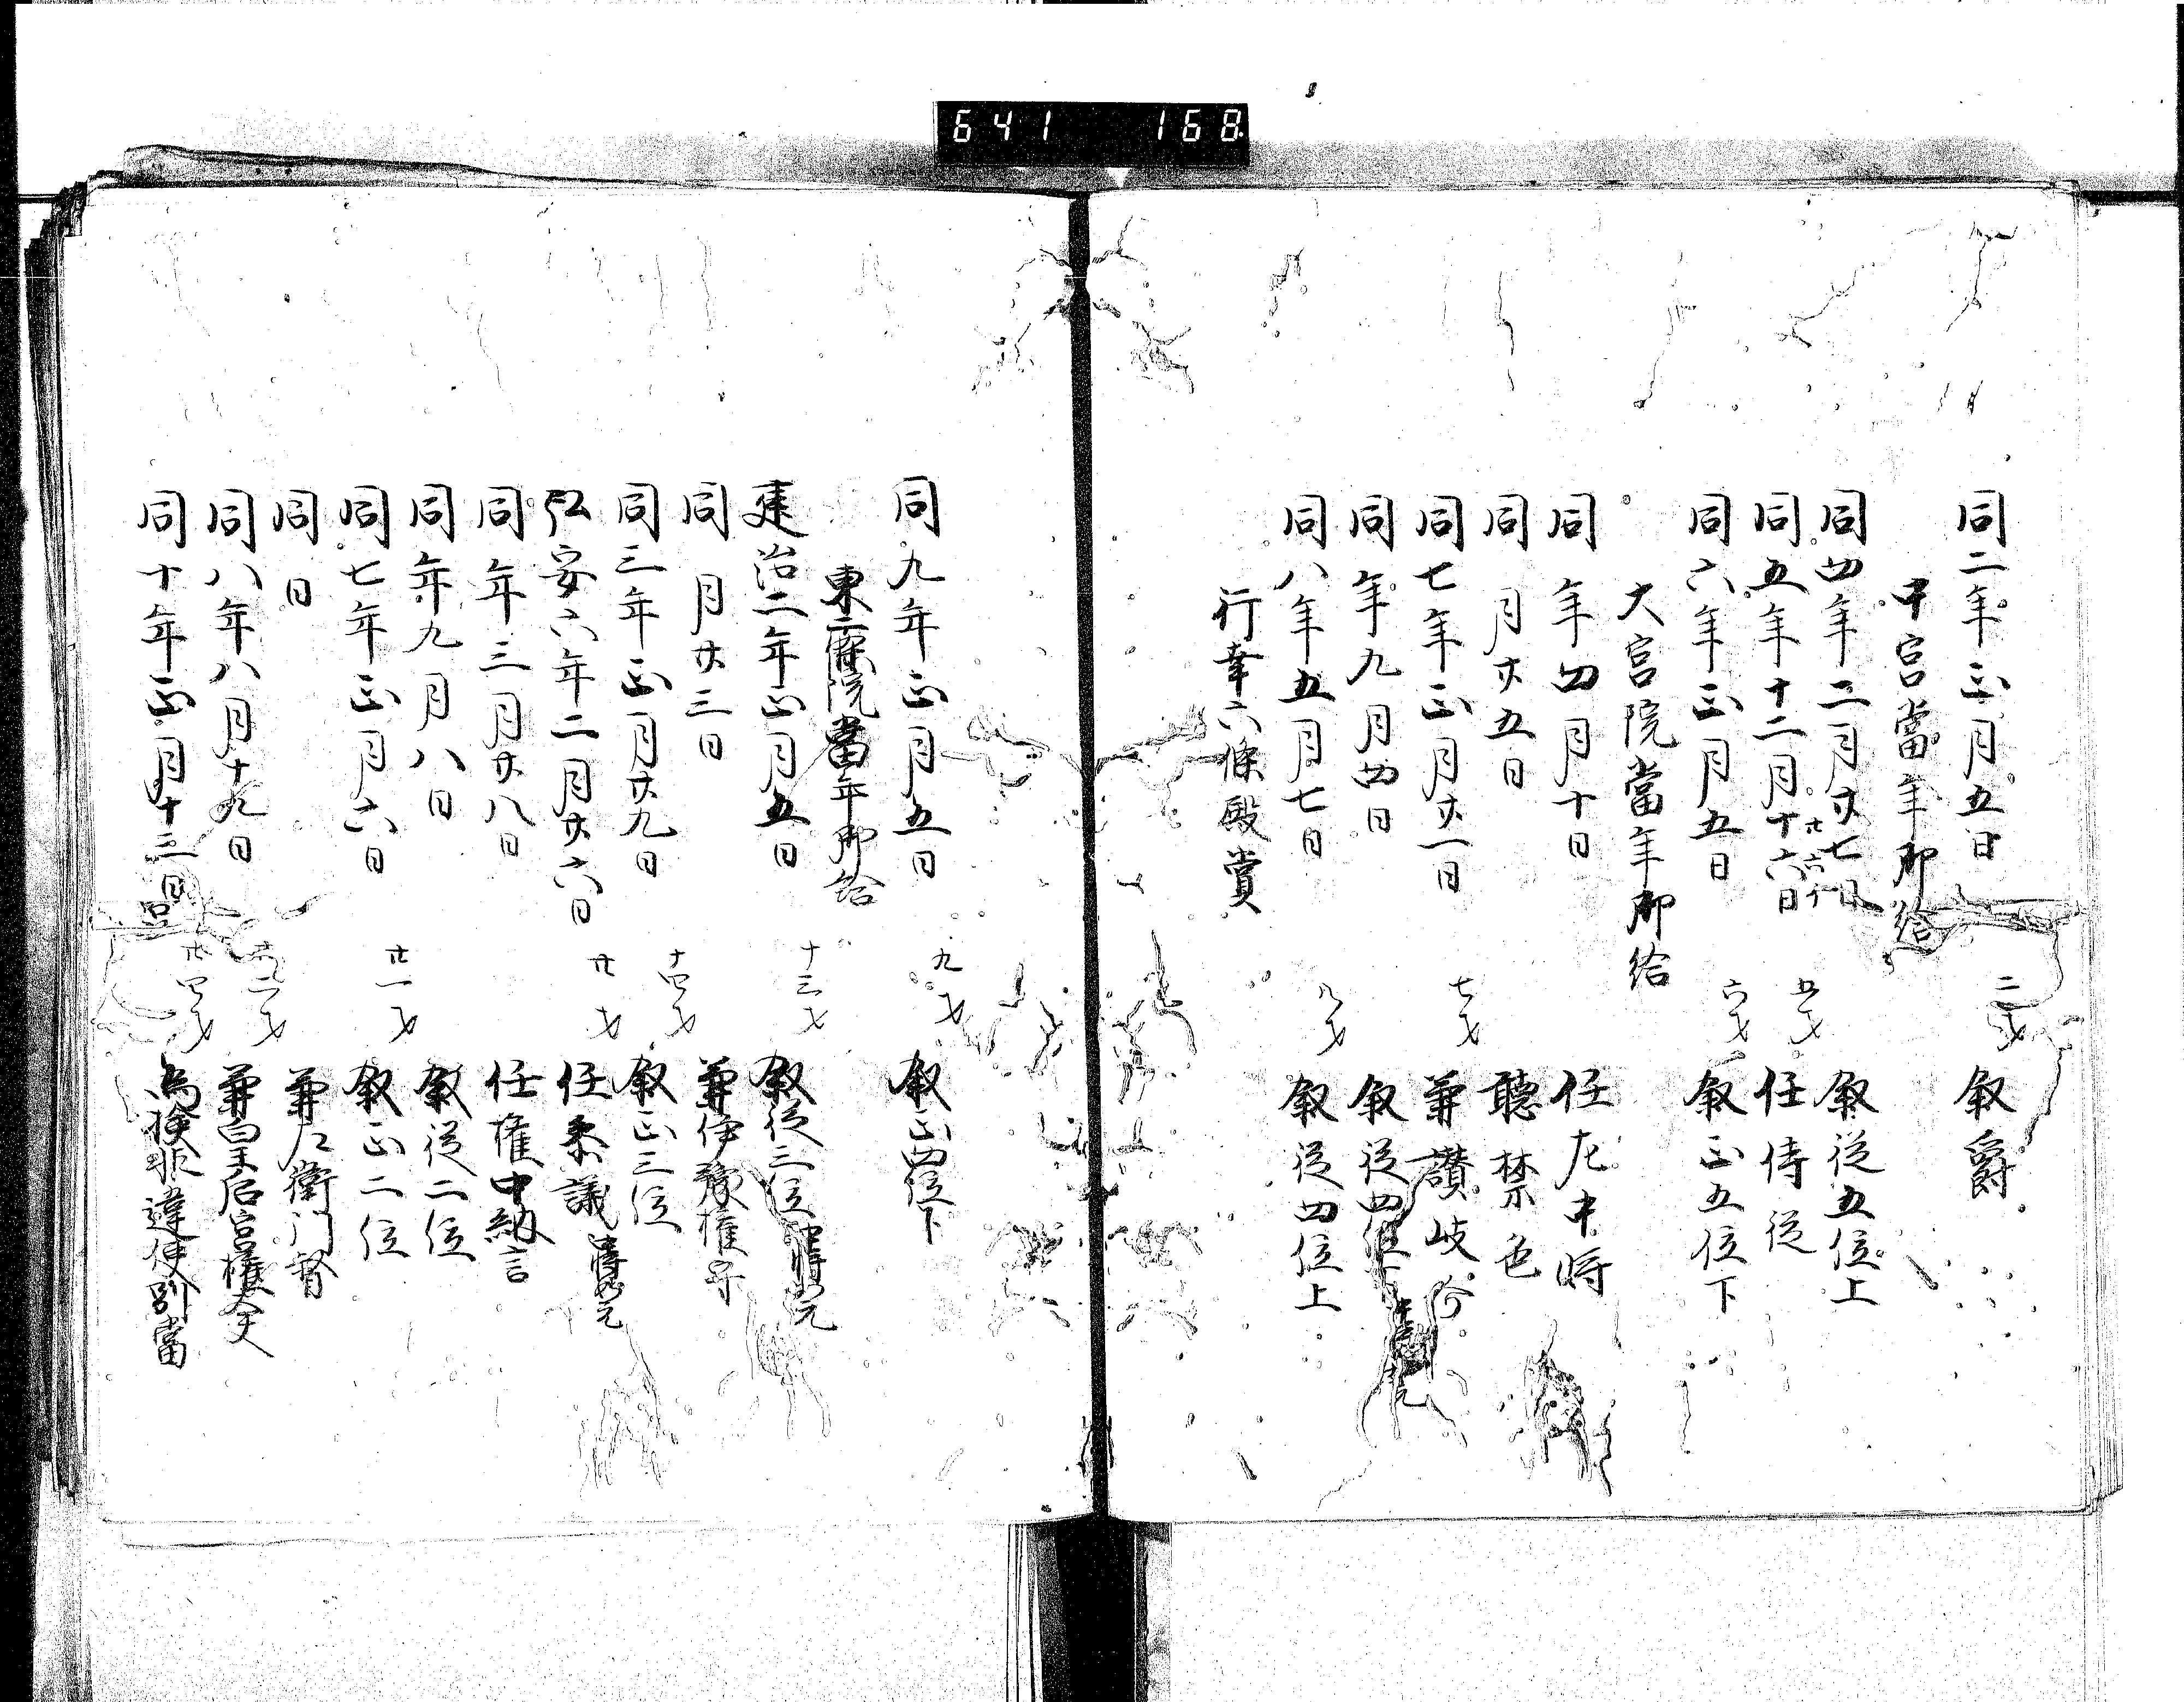 641 168
同二年正月五日 二才 叙爵
中宮當年御給
同四年二月廿七日 叙従五位上
同五年十二月十六日 五才 任侍従
同六年正月五日 六才 叙正五位下
大宮院當年御給
同年四月十日 任左中将
同月廿五日 聴禁色
同七年正月廿一日 七才 兼讃岐介
同年九月四日 叙従四位下
同八年五月七日 八才 叙従四位上
行幸六條殿賞
同九年正月五日 九才 叙正四位下
東二條院當年御給
建治二年正月五日 十三才 叙従三位 中将如元
同月廿三日 兼伊豫権守
同三年正月廿九日 十四才 叙正三位
弘安六年二月廿六日 廿才 任参議 中将如元
同年三月廿八日 任権中納言
同年九月八日 叙従二位
同七年正月六日 廿一才 叙正二位
同日 兼左衛門督
同八年八月十九日 廿二才 兼皇后宮権大夫
同十年正月十三日 廿四才 為検非違使別當